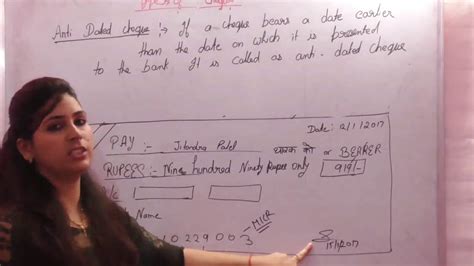 Anti Dated cheque :→ If a cheque bears a date earlier
than the date on which it is presented
to the bank It is called as anti-dated cheque
Date: 12/1/2017
PAY :- Jitendra Patel धारक को or BEARER
RUPEES:- Nine hundred Ninety Rupee only
A/c
Name
1022900 3 MICR
15/1/2017